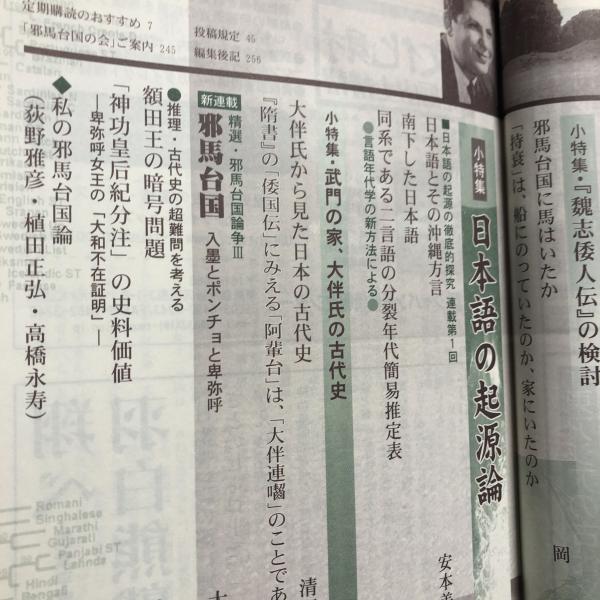 小特集・『魏志倭人伝』の検討
邪馬台国に馬はいたか
「持衰」は、船にのっていたのか、家にいたのか
岡
小特集 日本語の起源論
■日本語の起源の徹底的探究 連載第1回
日本語とその沖縄方言
南下した日本語
同系である二言語の分裂年代簡易推定表
●言語年代学の新方法による●
安本美
小特集・武門の家、大伴氏の古代史
大伴氏から見た日本の古代史
『隋書』の「倭国伝」にみえる「阿輩台」は、「大伴連囓」のことであ
清
新連載 精選・邪馬台国論争Ⅲ
邪馬台国 入墨とポンチョと卑弥呼
大
●推理・古代史の超難問を考える
額田王の暗号問題
「神功皇后紀分注」の史料価値
―卑弥呼女王の「大和不在証明」―
◆私の邪馬台国論
（荻野雅彦・植田正弘・高橋永寿）
定期購読のおすすめ 7
「邪馬台国の会」ご案内 245
投稿規定 45
編集後記 256
Romani
Singhalese
Marathi
Gujarati
Panjabi ST
Lahnda
Hindi
Bengali